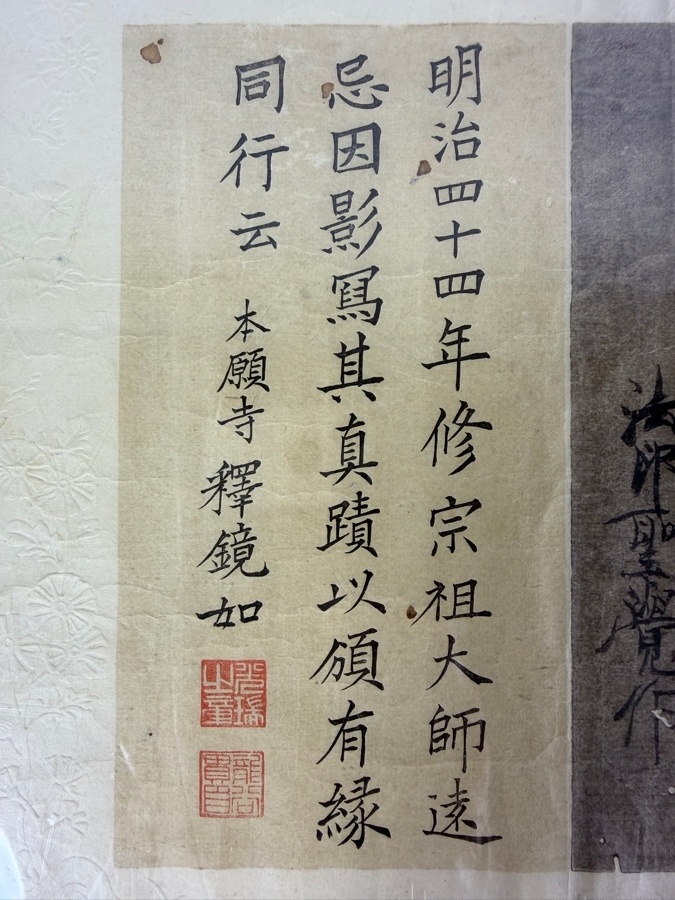 法印聖覺作
明治四十四年修宗祖大師遠
忌因影寫其真蹟以頒有緣
同行云
本願寺釋鏡如